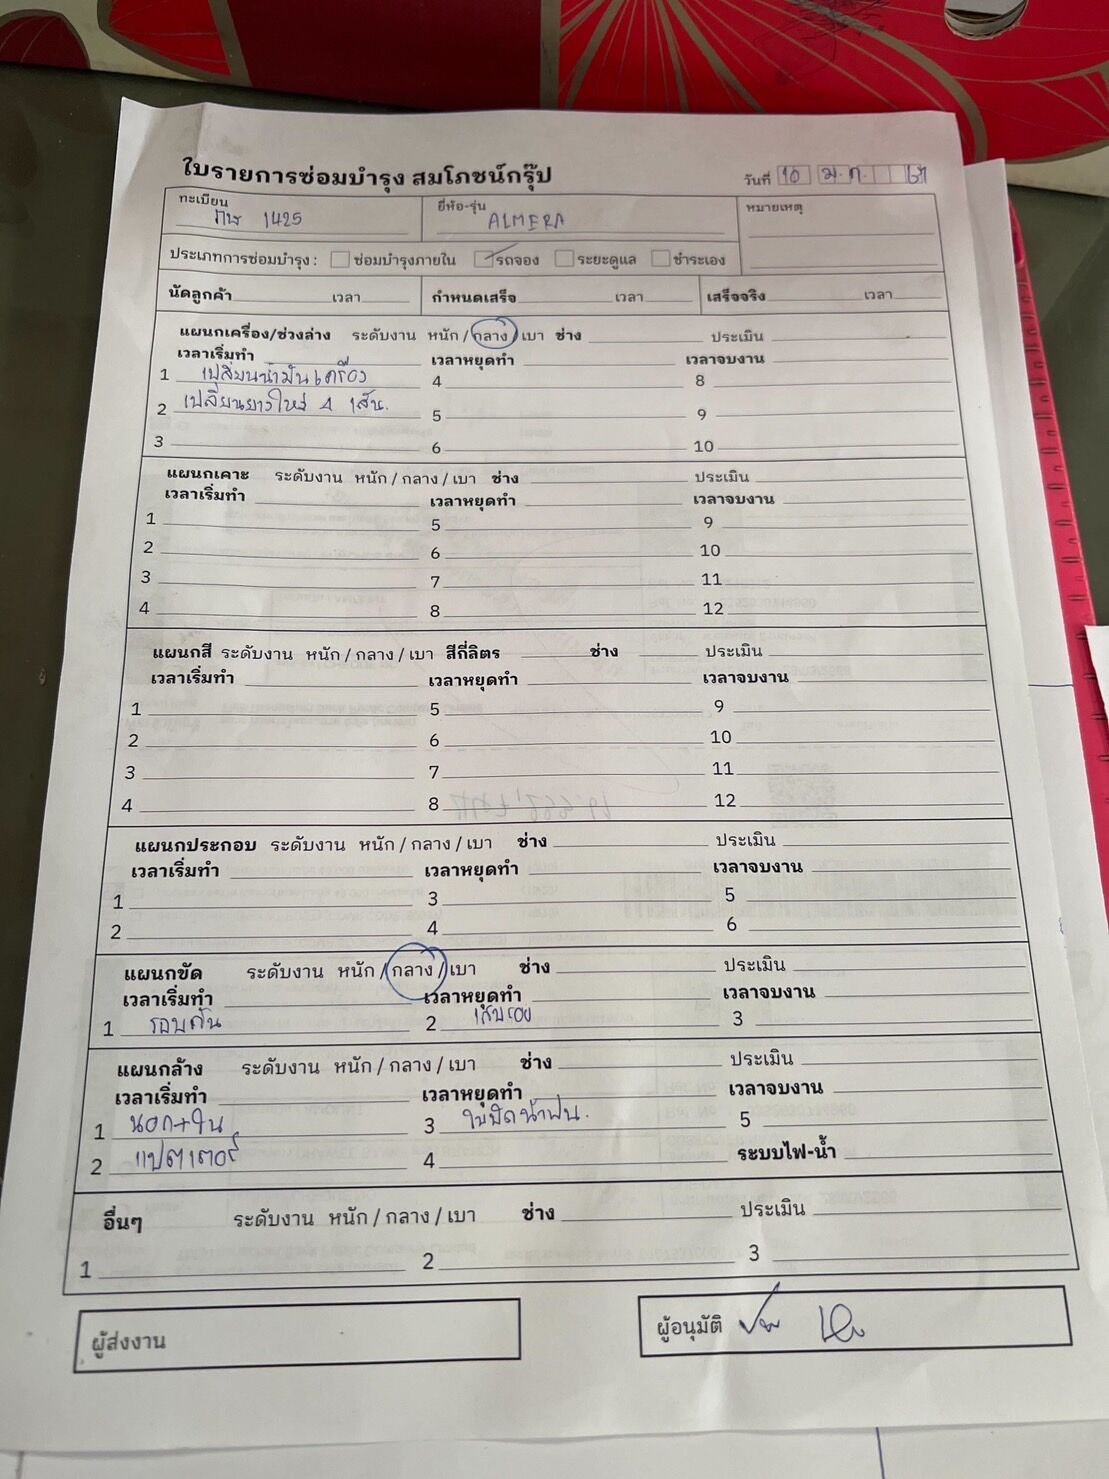 ใบรายการซ่อมบำรุง สมโภชน์กรุ๊ป
วันที่ 10 ม.ค.
ทะเบียน ยี่ห้อ-รุ่น หมายเหตุ
1425 ALMERA
ประเภทการซ่อมบำรุง : ซ่อมบำรุงภายใน รถจอง ระยะดูแล ชำระเอง
นัดลูกค้า เวลา กำหนดเสร็จ เวลา เสร็จจริง เวลา
แผนกเครื่อง/ช่วงล่าง ระดับงาน หนัก / กลาง / เบา ช่าง ประเมิน
เวลาเริ่มทำ เวลาหยุดทำ เวลาจบงาน
1 เปลี่ยนน้ำมันเครื่อง 4 8
2 เปลี่ยนยางใหม่ 4 เส้น. 5 9
3 6 10
แผนกเคาะ ระดับงาน หนัก / กลาง / เบา ช่าง ประเมิน
เวลาเริ่มทำ เวลาหยุดทำ เวลาจบงาน
1 5 9
2 6 10
3 7 11
4 8 12
แผนกสี ระดับงาน หนัก / กลาง / เบา สีกี่ลิตร ช่าง ประเมิน
เวลาเริ่มทำ เวลาหยุดทำ เวลาจบงาน
1 5 9
2 6 10
3 7 11
4 8 12
แผนกประกอบ ระดับงาน หนัก / กลาง / เบา ช่าง ประเมิน
เวลาเริ่มทำ เวลาหยุดทำ เวลาจบงาน
1 3 5
2 4 6
แผนกขัด ระดับงาน หนัก / กลาง / เบา ช่าง ประเมิน
เวลาเริ่มทำ เวลาหยุดทำ เวลาจบงาน
1 รอบคัน 2 เก็บรอย 3
แผนกล้าง ระดับงาน หนัก / กลาง / เบา ช่าง ประเมิน
เวลาเริ่มทำ เวลาหยุดทำ เวลาจบงาน
1 นอก+ใน 3 ใบปัดน้ำฝน. 5
2 แบตเตอรี่ 4 ระบบไฟ-น้ำ
อื่นๆ ระดับงาน หนัก / กลาง / เบา ช่าง ประเมิน
1 2 3
ผู้ส่งงาน ผู้อนุมัติ